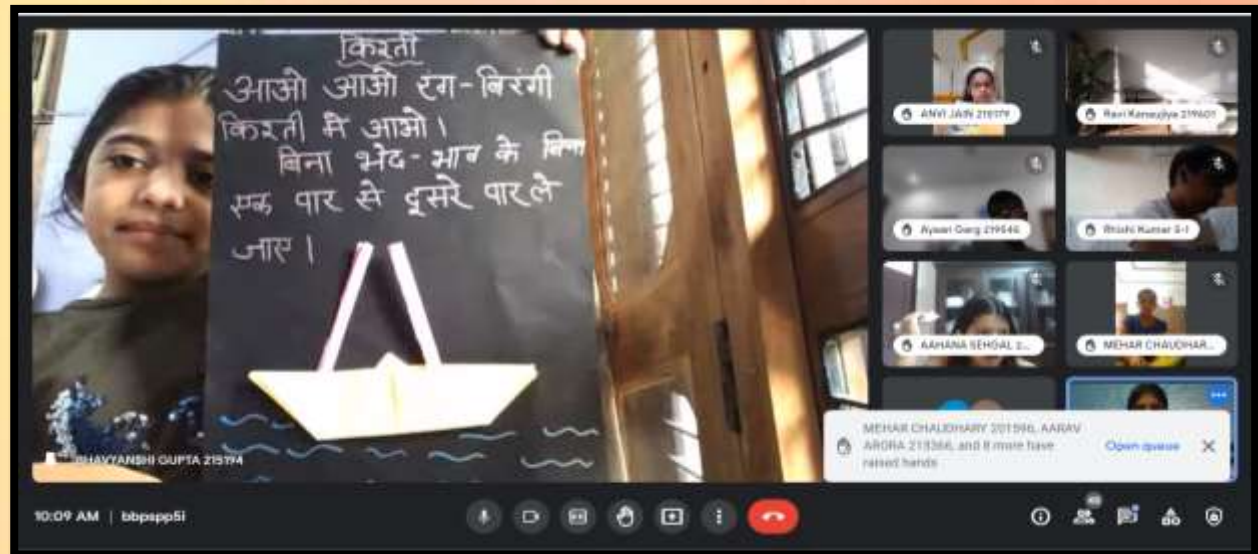 किश्ती
आओ आओ रग-बिरंगी
किश्ती में आओ।
बिना भेद-भाव के बिना
एक पार से दूसरे पार ले
जाए।
BHAVYANSHI GUPTA 215194
ANVI JAIN 215179
Ravi Kanaujiya 219601
Ayaan Garg 219546
Rhishi Kumar 5-I
AAHANA SEHGAL 2...
MEHAR CHAUDHAR...
MEHAR CHAUDHARY 201596, AARAV
ARORA 215366, and 8 more have
raised hands
Open queue
10:09 AM | bbpspp5i